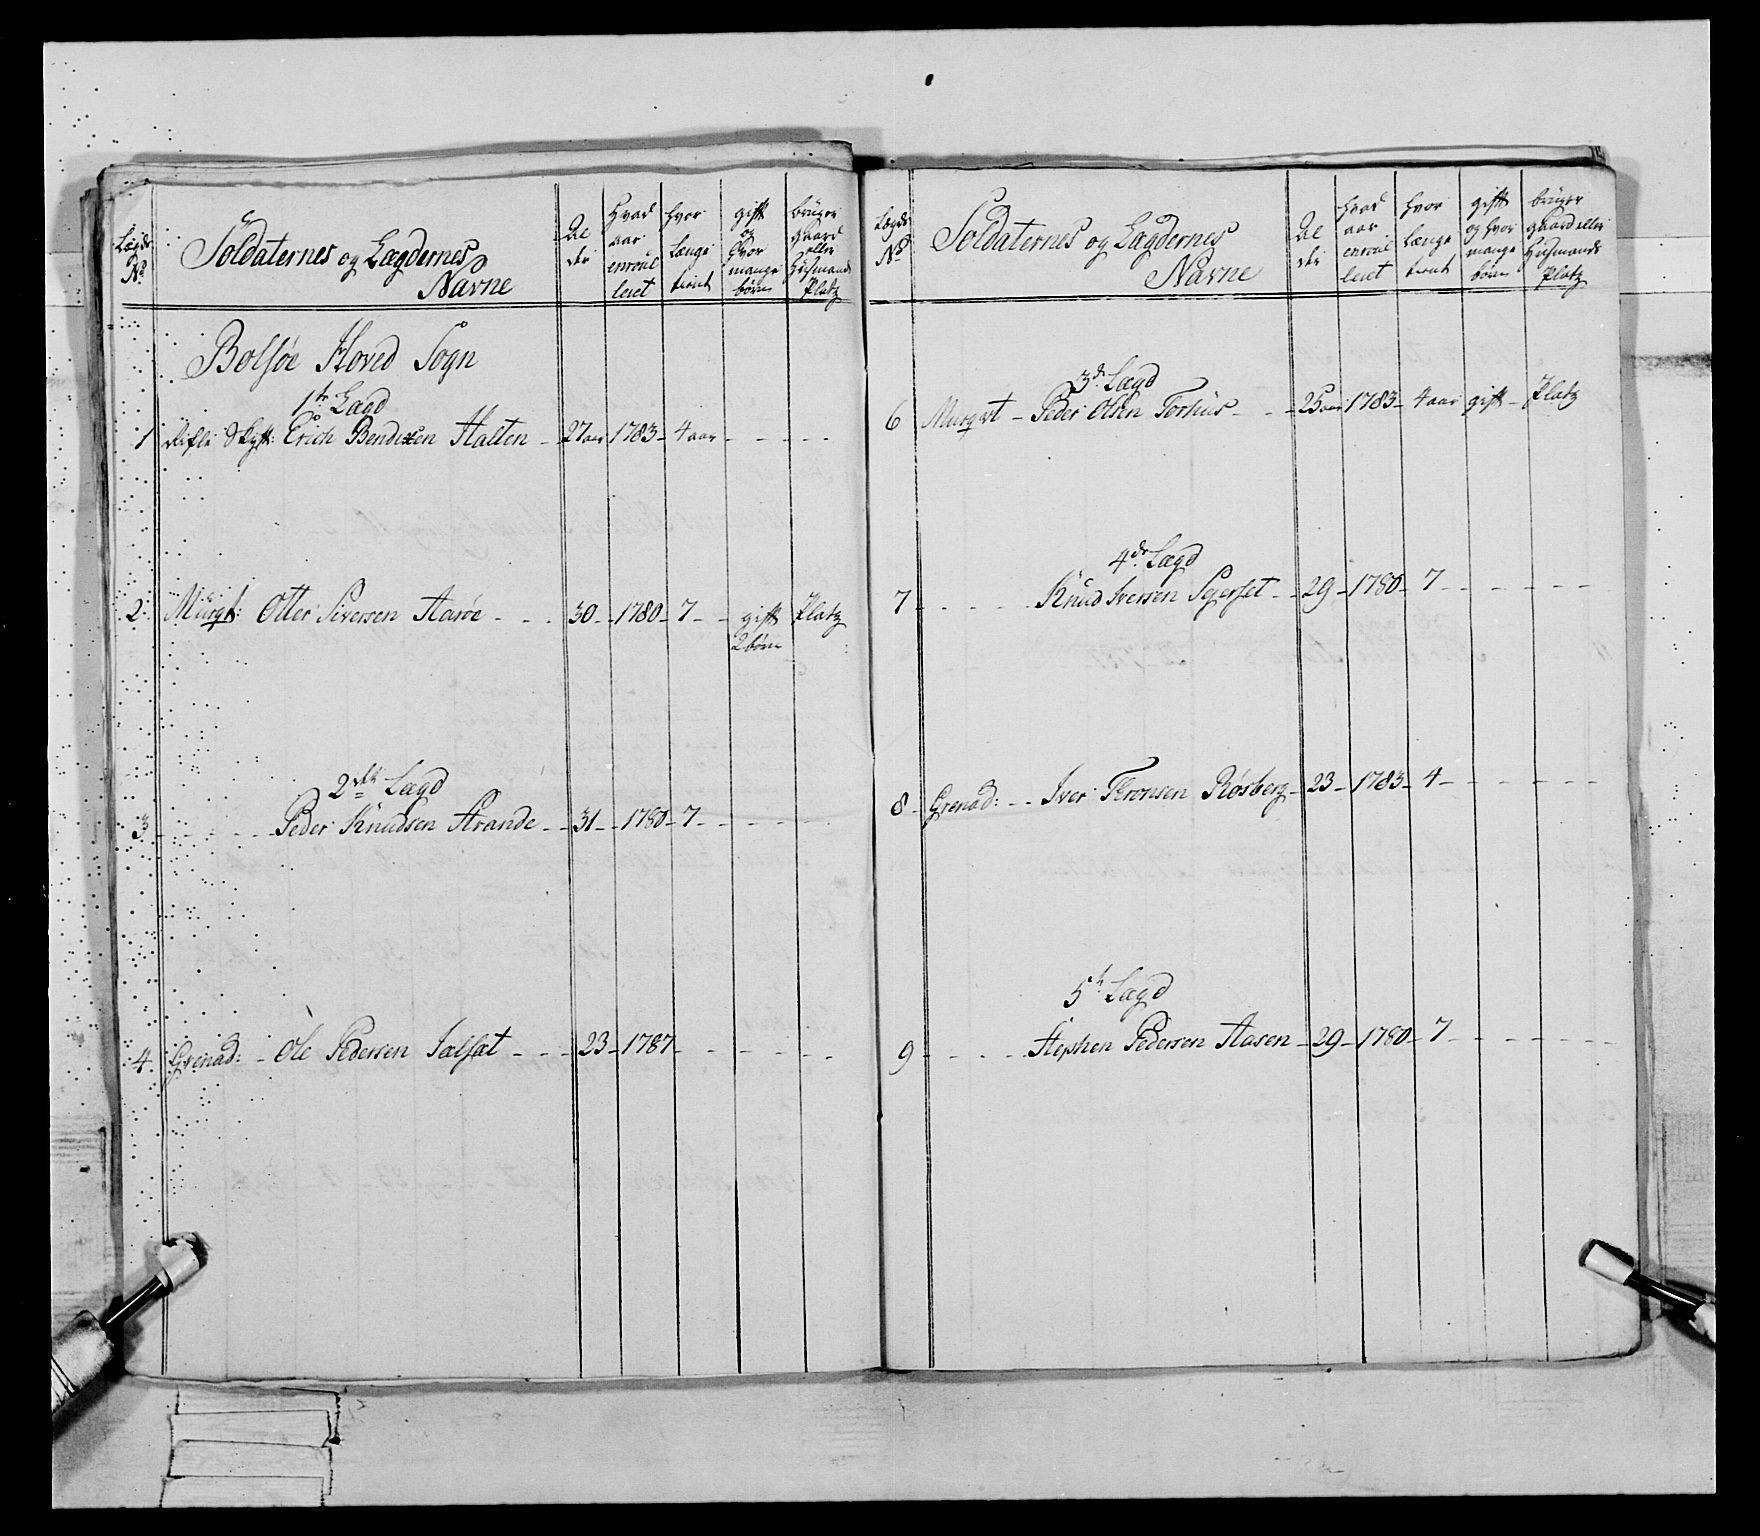 Lægds
No
Soldaternes og Lægdernes
Navne
Al
der
Hvad
aar
enroul
leret
hvor
længe
tient
gift
og
hvor
mange
børn
bruger
gaard
eller
Huusmands
Platz
Bolsöe Hoved Sogn
1te Lægd
1 Rifle Skytt: Erich Bendixen Halten - 27 aar 1783 - 4 aar - - - -
2. Musqt: Otter Siversen Aaröe - - - 30 - 1780 - 7 - - gift Platz
2 börn
2den Lægd
3 - - - - Peder Knudsen Strande - - 31 - 1780 - 7 - - - - -
4. Grenad: - Ole Pedersen Salsæt - - - 23 - 1787 - - - - - -
Lægds
No
Soldaternes og Lægdernes
Navne
Al
der
Hvad
aar
enroul
leret
hvor
længe
tient
gift
og hvor
mange
børn
bruger
gaard eller
Huusmands
Platz
3de Lægd
6 Musqvt - Peder Olsen Torhus - - - 25 aar 1783 - 4 aar gift - Platz
4de Lægd
7 - - - - Knud Iversen Sejerset - - 29 - 1780 - 7 - - - - -
8 - Grenad: - - Iver Tronsen Rösberg - 23 - 1783 - 4 - - - - -
5te Lægd
9 - - - - Stephen Pedersen Aasen - 29 - 1780 - 7 - - - - - -